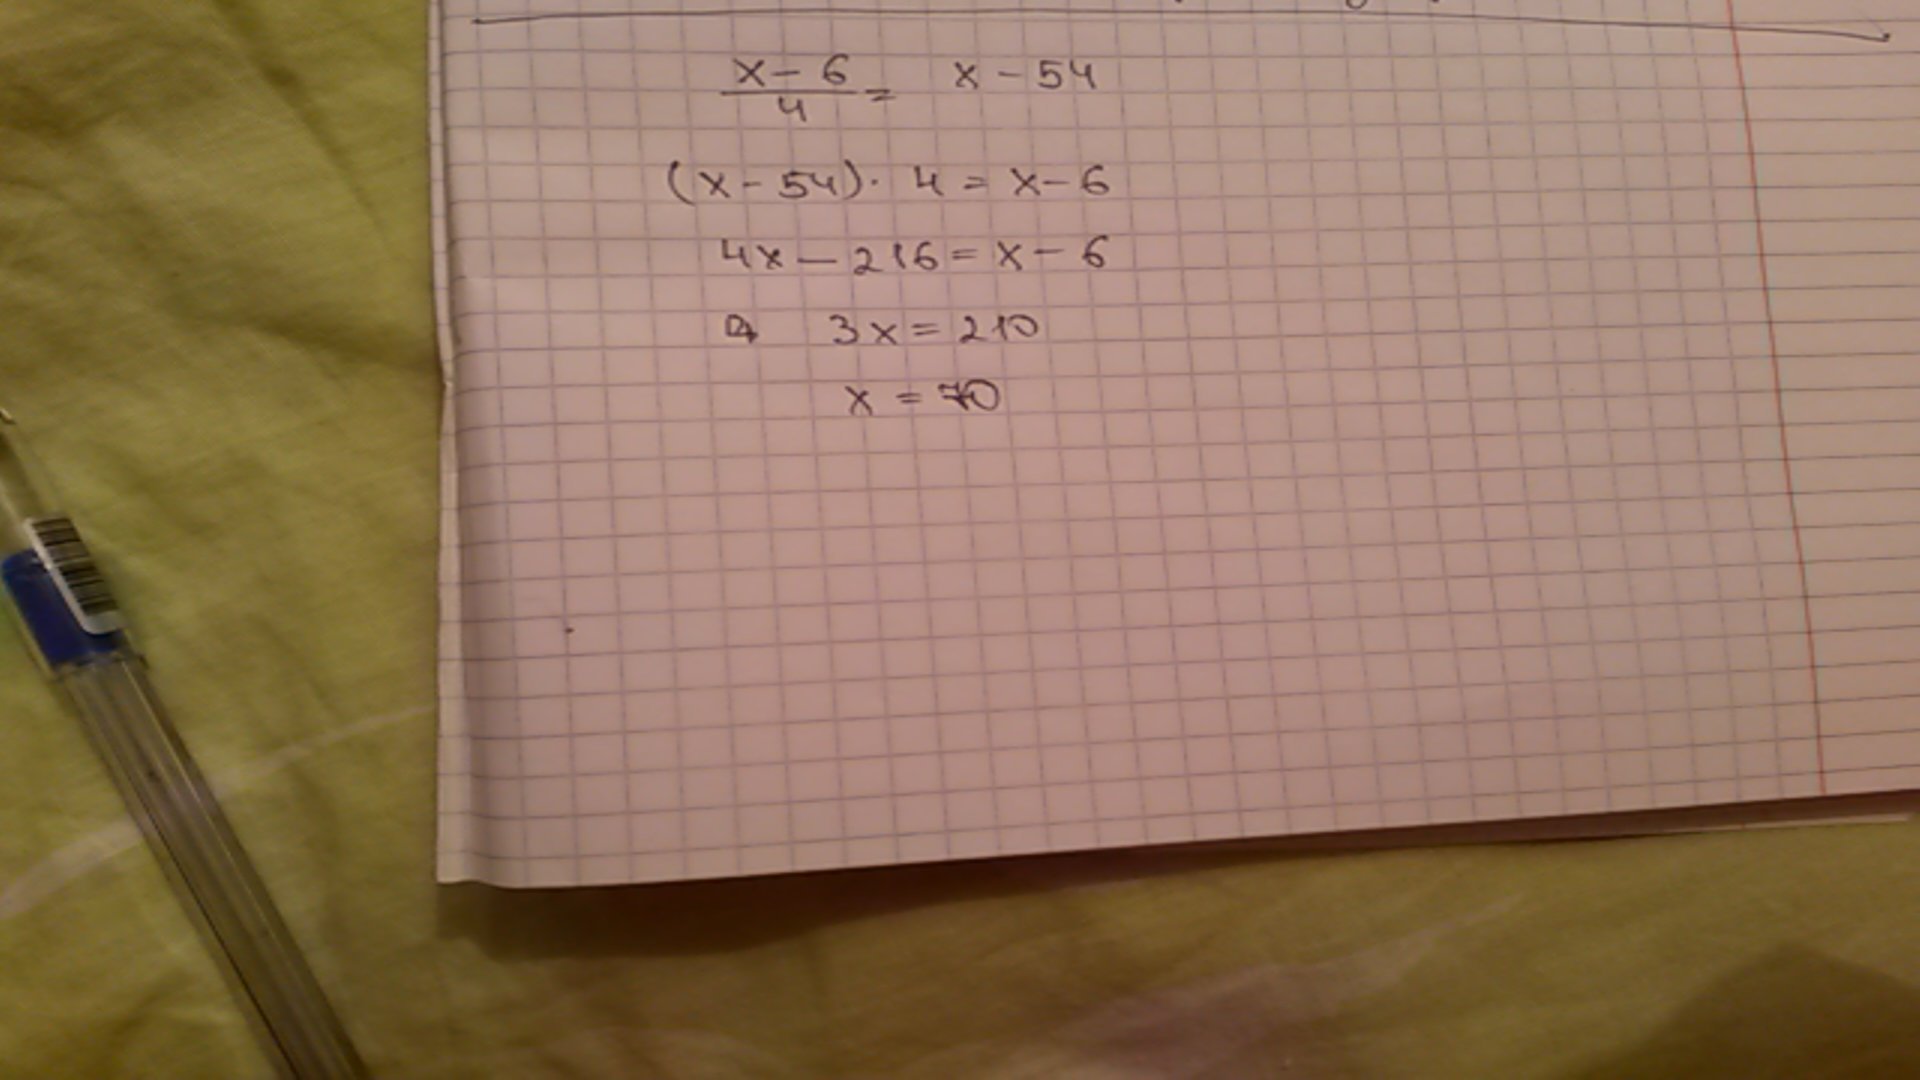 x - 6 / 4 = x - 54
(x - 54) · 4 = x - 6
4x - 216 = x - 6
3x = 210
x = 70